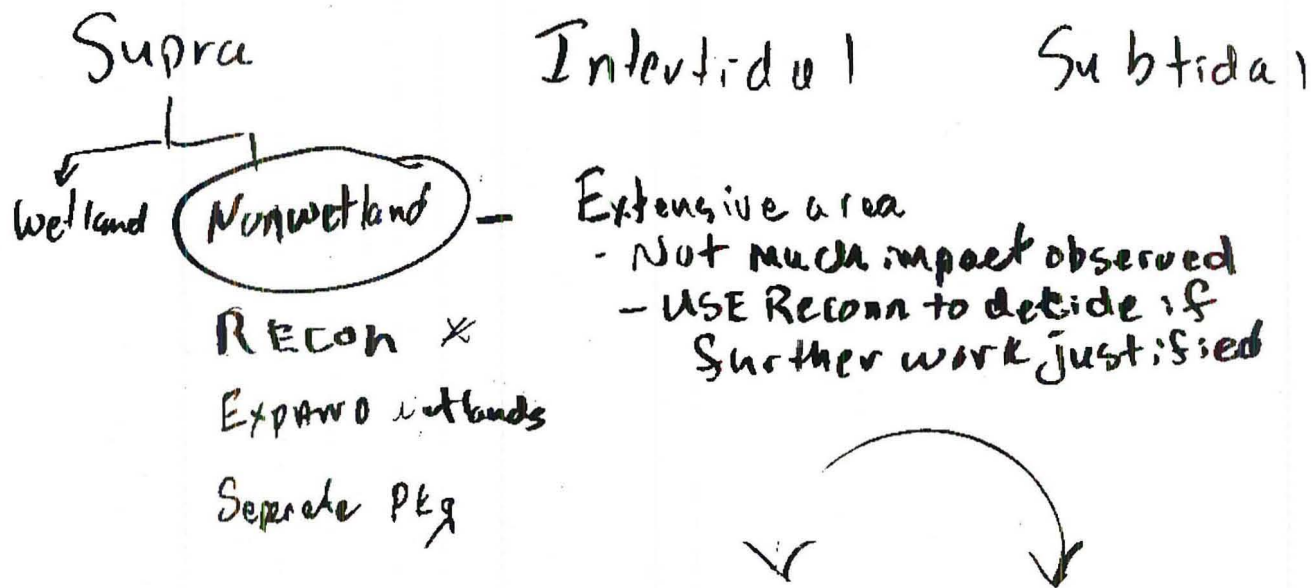 Supra Intertidal Subtidal
Wetland Nonwetland - Extensive area
- Not much impact observed
- USE Reconn to decide if
further work justified
RECON x
EXPAND wetlands
Seperate Pkg